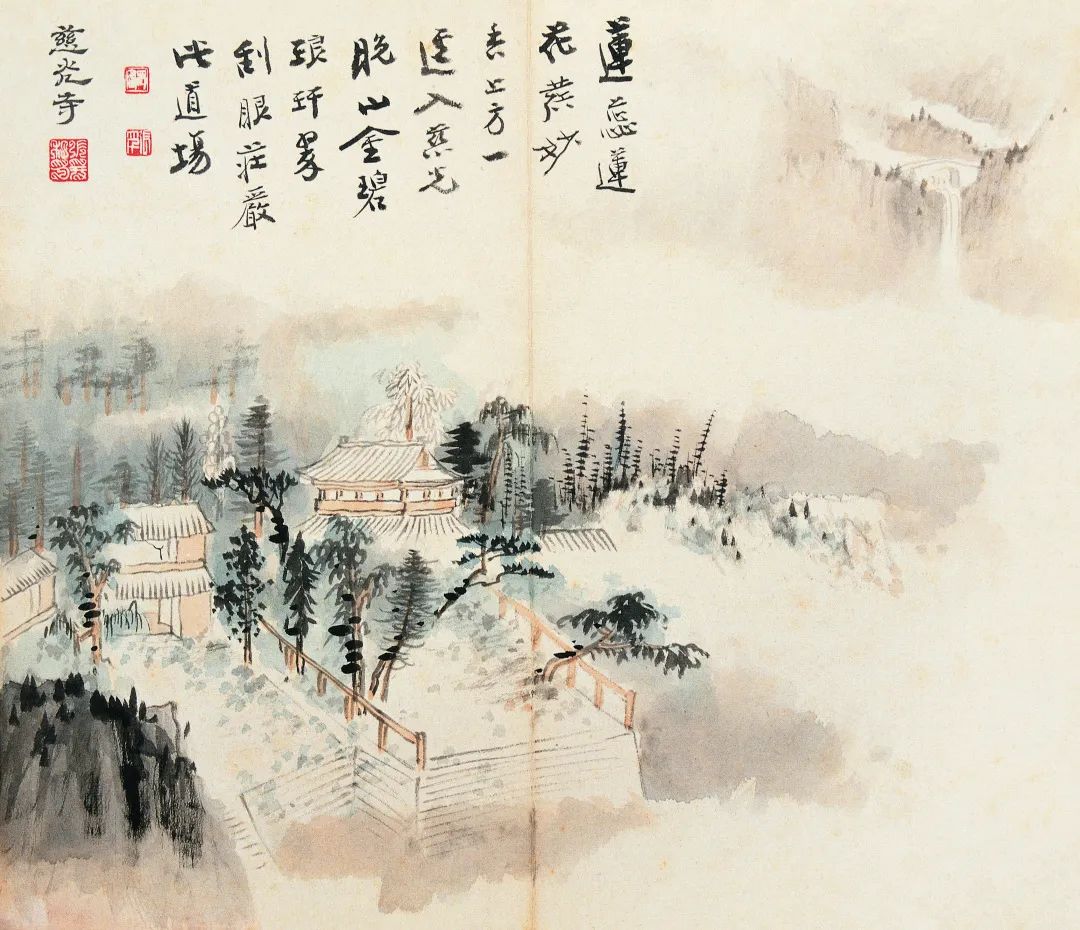 蓮蕊蓮
花爇妙
香上方一
逕入慈光
晚山金碧
琅玕翠
刮眼莊嚴
此道場
慈光寺